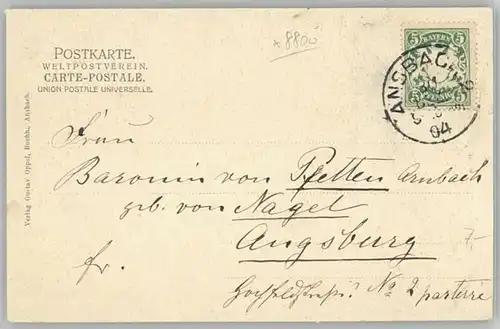 * 8800
POSTKARTE.
WELTPOSTVEREIN.
CARTE-POSTALE.
UNION POSTALE UNIVERSELLE.
5 BAYERN 5
ANSBACH
04
Verlag Gustav Oppel, Buchh., Ansbach.
Frau
Baronin von Pfetten Arnbach
geb. von Nagel
Augsburg
fr.
7,-
Hochfeldstraße No 2 parterre